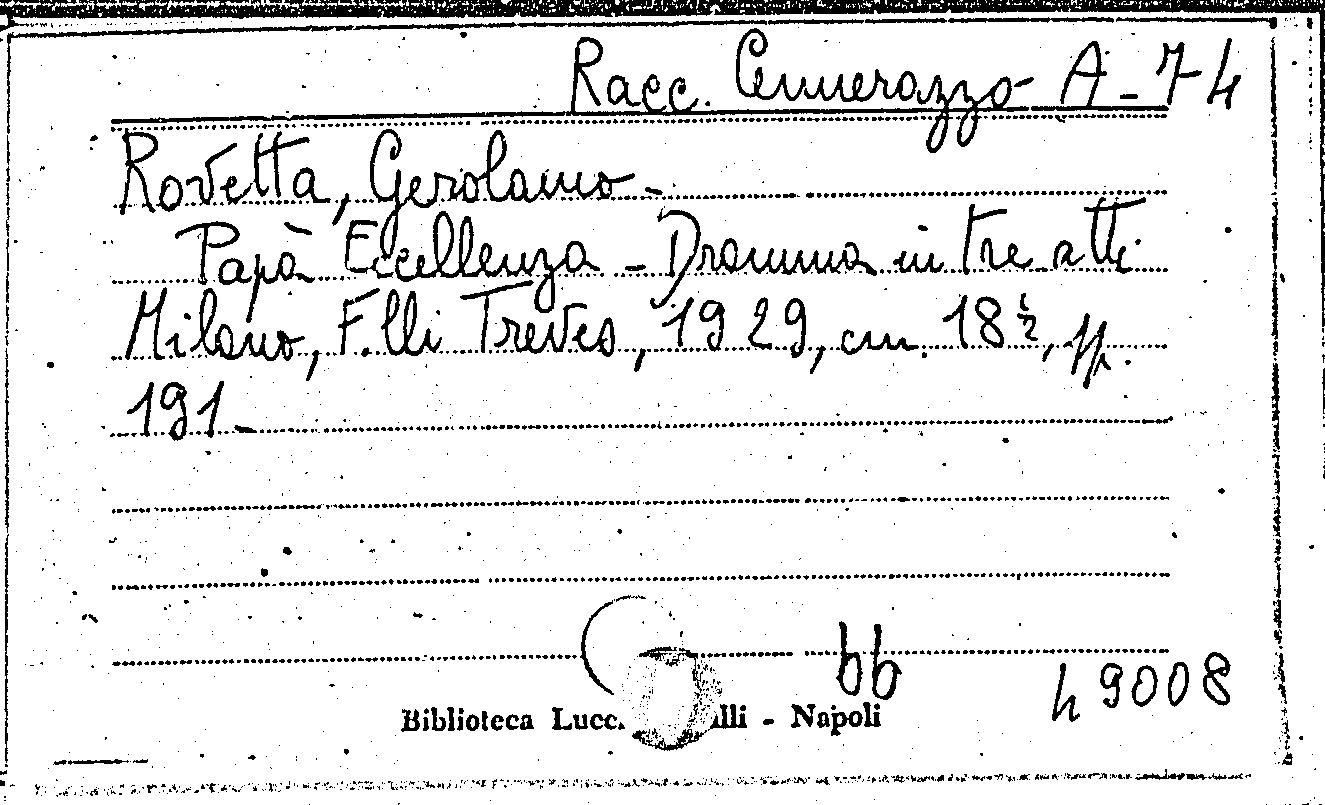 Racc. Cennerazzo A-74
Rovetta, Gerolamo-
Papà Eccellenza - Dramma in tre atti
Milano, F.lli Treves, 1929, cm. 18½, pp.
191-
bb
49008
Biblioteca Lucc lli - Napoli